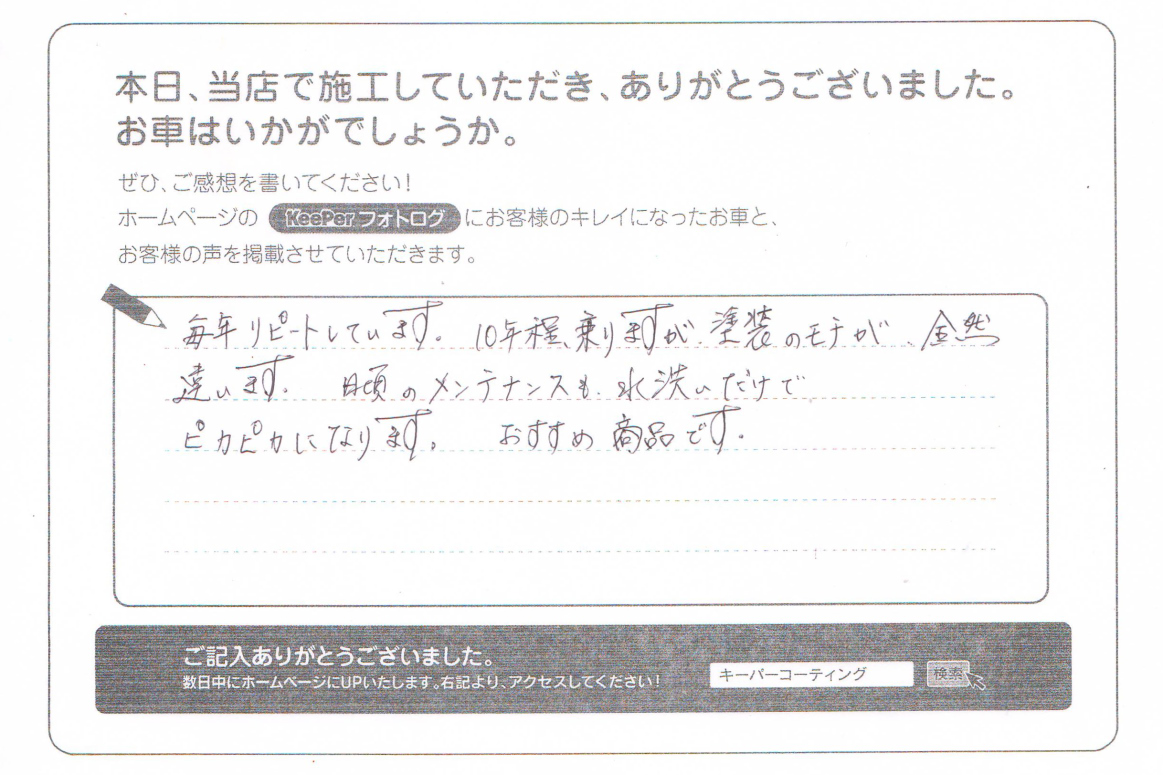 本日、当店で施工していただき、ありがとうございました。
お車はいかがでしょうか。
ぜひ、ご感想を書いてください!
ホームページの KeePer フォトログ にお客様のキレイになったお車と、
お客様の声を掲載させていただきます。
毎年リピートしています。 10年程、乗りますが、塗装のモチが、全然
違います。 日頃のメンテナンスも、水洗いだけで
ピカピカになります。 おすすめ商品です。
ご記入ありがとうございました。
数日中にホームページにUPいたします。右記より、アクセスしてください!
キーパーコーティング
検索